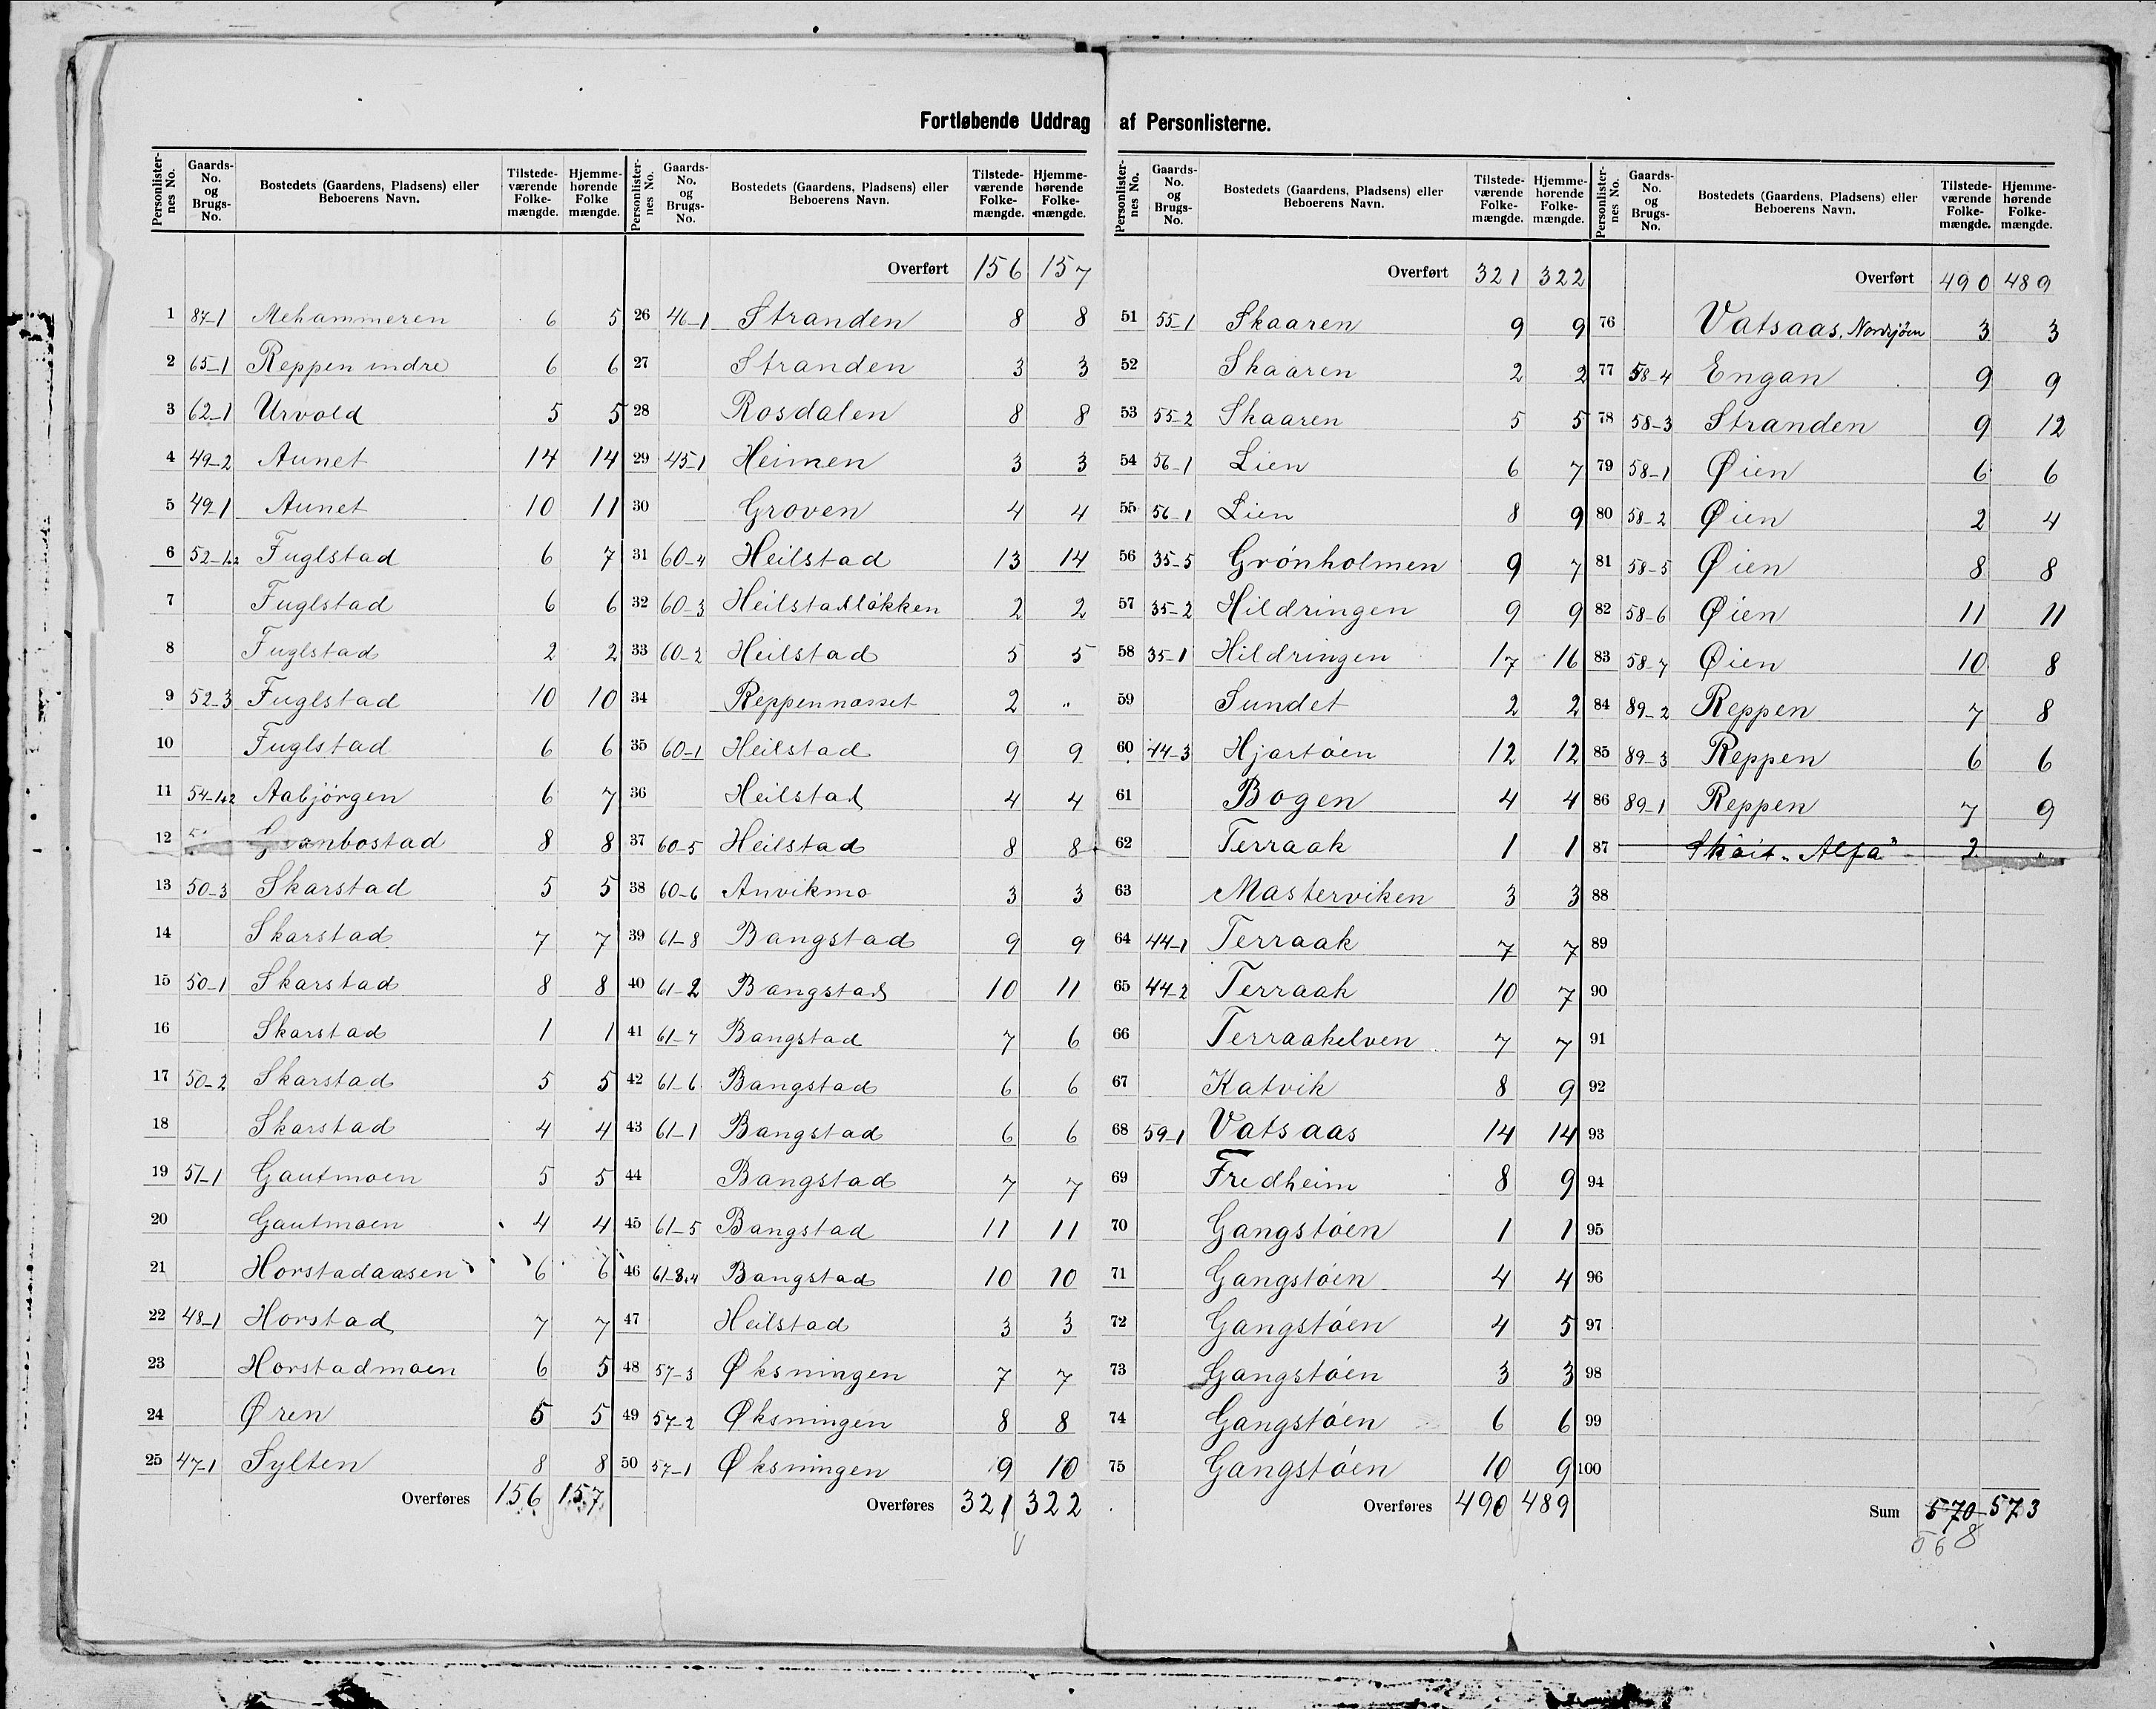 Fortløbende Uddrag af Personlisterne.
Personlister-nes No. Gaards-No. og Brugs-No. Bostedets (Gaardens, Pladsens) eller Beboerens Navn. Tilstede-værende Folke-mængde. Hjemme-hørende Folke mængde.
1 87-1 Mehammeren 6 5
2 65-1 Reppen indre 6 6
3 62-1 Urvold 5 5
4 49-2 Aunet 14 14
5 49-1 Aunet 10 11
6 52-1.2 Fuglstad 6 7
7 Fuglstad 6 6
8 Fuglstad 2 2
9 52-3 Fuglstad 10 10
10 Fuglstad 6 6
11 54-1.2 Aabjörgen 6 7
12 Granbostad 8 8
13 50-3 Skarstad 5 5
14 Skarstad 7 7
15 50-1 Skarstad 8 8
16 Skarstad 1 1
17 50-2 Skarstad 5 5
18 Skarstad 4 4
19 51-1 Gautmoen 5 5
20 Gautmoen 4 4
21 Horstadaasen 6 6
22 48-1 Horstad 7 7
23 Horstadmoen 6 5
24 Øren 5 5
25 47-1 Sylten 8 8
Overføres 156 157
Personlister-nes No. Gaards-No. og Brugs-No. Bostedets (Gaardens, Pladsens) eller Beboerens Navn. Tilstede-værende Folke-mængde. Hjemme-hørende Folke-mængde.
Overført 156 157
26 46-1 Stranden 8 8
27 Stranden 3 3
28 Rosdalen 8 8
29 45-1 Heimen 3 3
30 Groven 4 4
31 60-4 Heilstad 13 14
32 60-3 Heilstadløkken 2 2
33 60-2 Heilstad 5 5
34 Reppennæsset 2 "
35 60-1 Heilstad 9 9
36 Heilstad 4 4
37 60-5 Heilstad 8 8
38 60-6 Anvikmo 3 3
39 61-8 Bangstad 9 9
40 61-2 Bangstad 10 11
41 61-7 Bangstad 7 6
42 61-6 Bangstad 6 6
43 61-1 Bangstad 6 6
44 Bangstad 7 7
45 61-5 Bangstad 11 11
46 61-3.4 Bangstad 10 10
47 Heilstad 3 3
48 57-3 Øksningen 7 7
49 57-2 Øksningen 8 8
50 57-1 Øksningen 9 10
Overføres 321 322
Personlister-nes No. Gaards-No. og Brugs-No. Bostedets (Gaardens, Pladsens) eller Beboerens Navn. Tilstede-værende Folke-mængde. Hjemme-hørende Folke-mængde.
Overført 321 322
51 55-1 Skaaren 9 9
52 Skaaren 2 2
53 55-2 Skaaren 5 5
54 56-1 Lien 6 7
55 56-1 Lien 8 9
56 35-5 Grönholmen 9 7
57 35-2 Hildringen 9 9
58 35-1 Hildringen 17 16
59 Sundet 2 2
60 44-3 Hjartöen 12 12
61 Bogen 4 4
62 Terraak 1 1
63 Masterviken 3 3
64 44-1 Terraak 7 7
65 44-2 Terraak 10 7
66 Terraakelven 7 7
67 Katvik 8 9
68 59-1 Vatsaas 14 14
69 Fredheim 8 9
70 Gangstöen 1 1
71 Gangstöen 4 4
72 Gangstöen 4 5
73 Gangstöen 3 3
74 Gangstöen 6 6
75 Gangstöen 10 9
Overføres 490 489
Personlister-nes No. Gaards-No. og Brugs-No. Bostedets (Gaardens, Pladsens) eller Beboerens Navn. Tilstede-værende Folke-mængde. Hjemme-hørende Folke-mængde.
Overført 490 489
76 Vatsaas, 3 3
77 58-4 Engan 9 9
78 58-3 Stranden 9 12
79 58-1 Øien 6 6
80 58-2 Øien 2 4
81 58-5 Øien 8 8
82 58-6 Øien 11 11
83 58-7 Øien 10 8
84 89-2 Reppen 7 8
85 89-3 Reppen 6 6
86 89-1 Reppen 7 9
87 Sköit "Alfa" 2 "
88
89
90
91
92
93
94
95
96
97
98
99
100
Sum 570 573
568